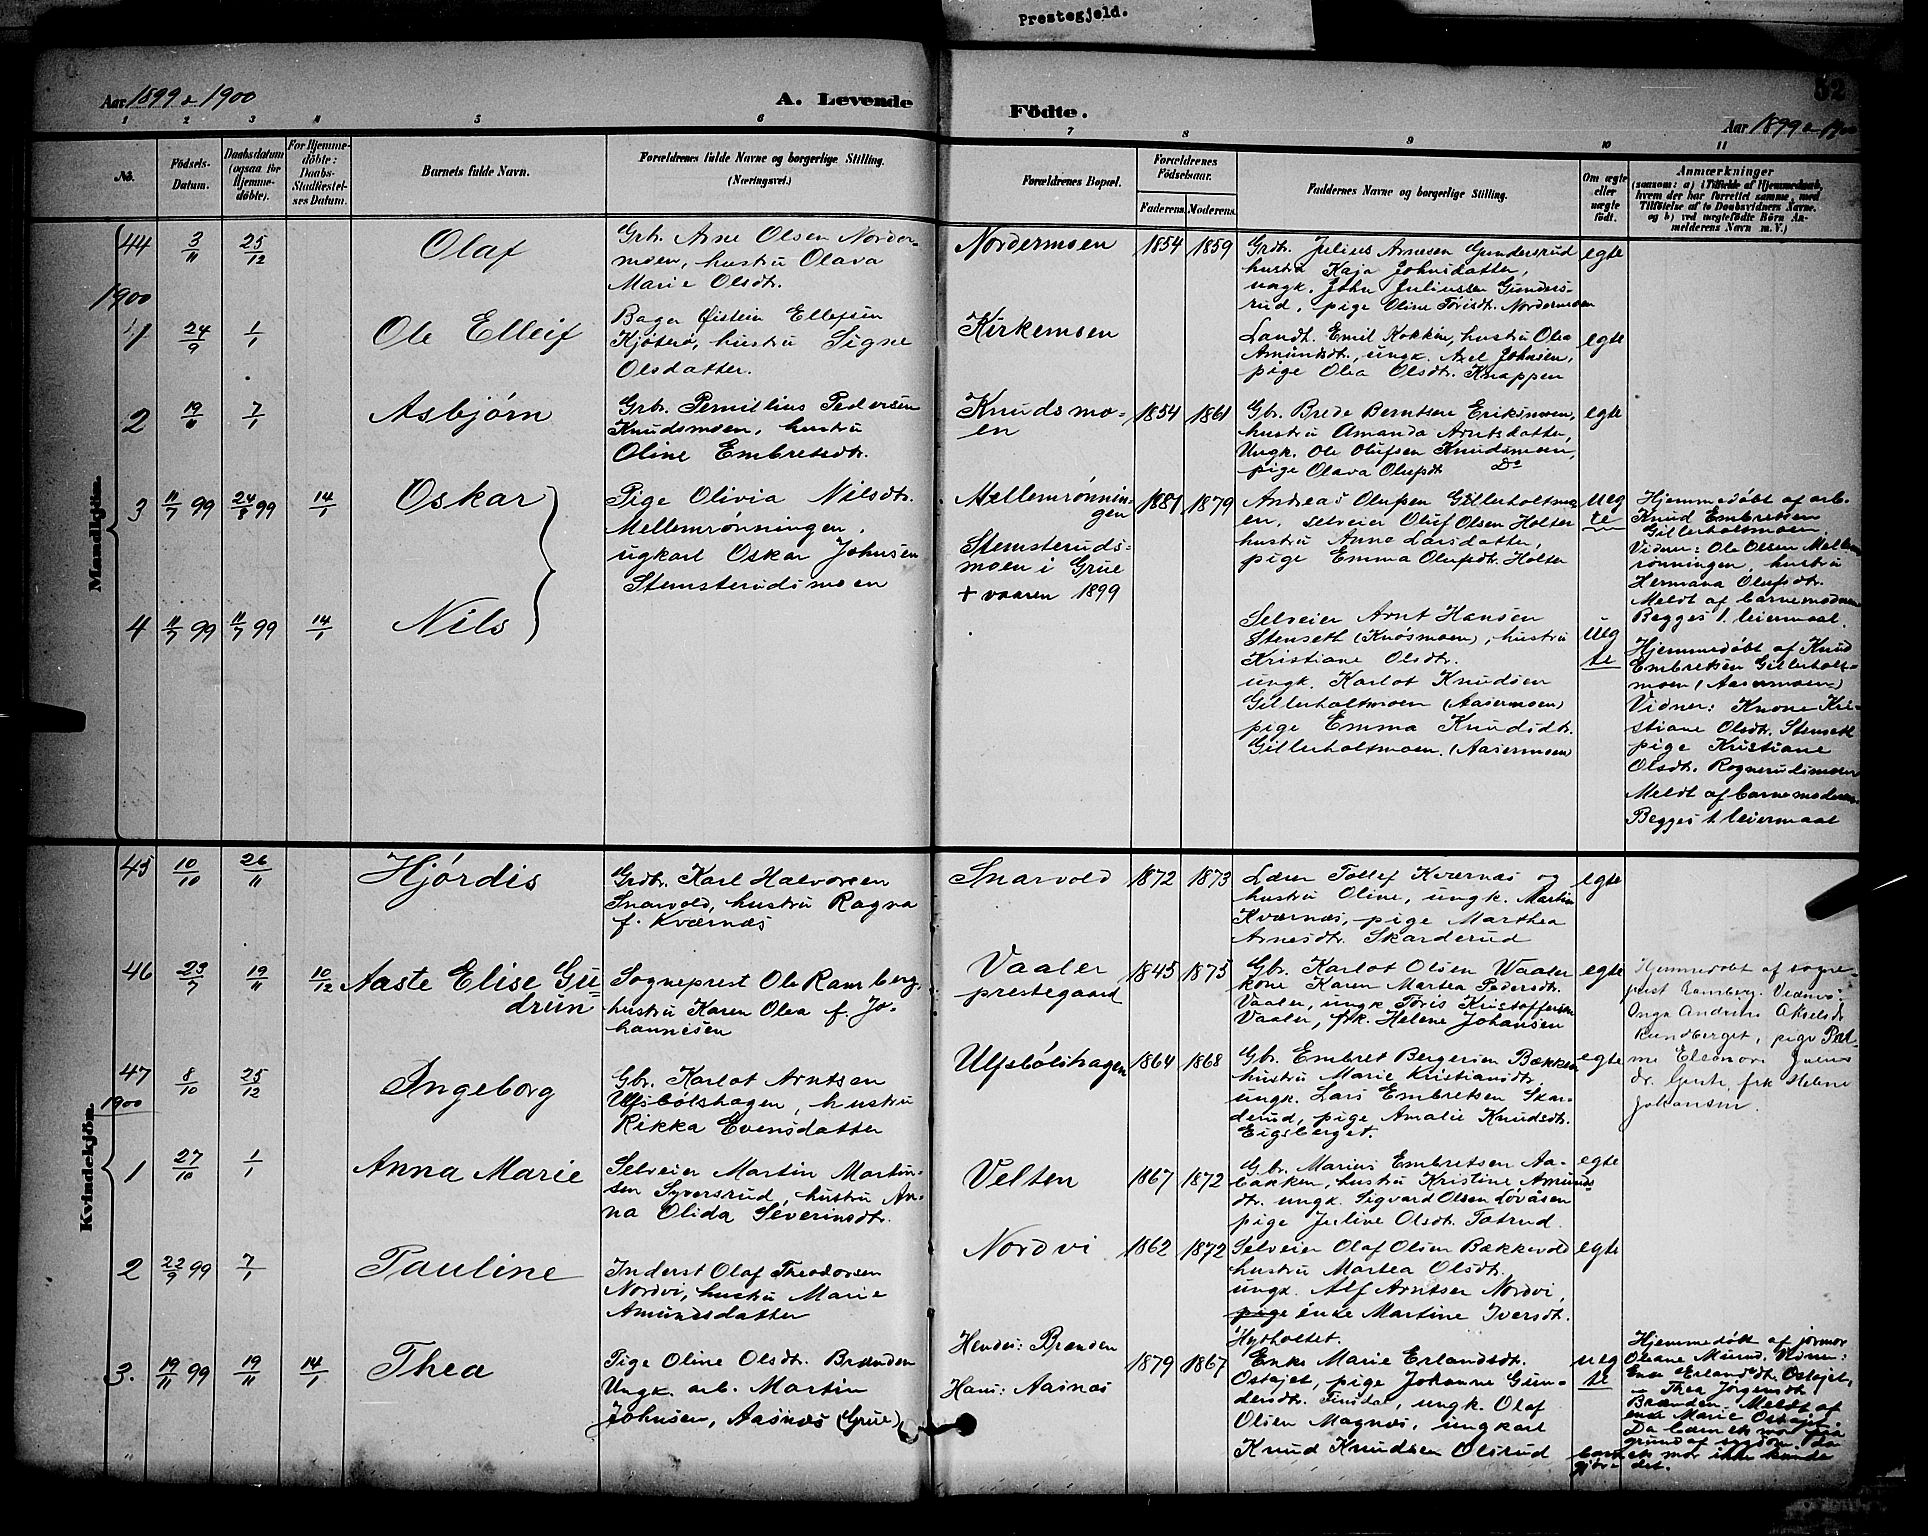 Prestegjeld.
Aar 1899 & 1900
A. Levende
Födte.
52
Aar 1899 &
1 2 3 4 5 6 7 8 9 10 11
No.
Födsels-
Datum.
Daabsdatum
(ogsaa for
Hjemme-
döbte).
For Hjemme-
döbte:
Daabs-
Stadfæstel-
ses Datum.
Barnets fulde Navn.
Forældrenes fulde Navne og borgerlige Stilling.
(Næringsvei.)
Forældrenes Bopæl.
Forældrenes
Födselsaar.
Faderens. Moderens.
Faddernes Navne og borgerlige Stilling.
Om ægte
eller
uægte
födt.
Anmærkninger
(saasom: a) i Tilfælde af Hjemmedaab,
hvem der har forrettet samme, med
Tilföielse af to Daabsvidners Navne,
og b) ved uægtefödte Börn An-
melderens Navn m. V.)
Mandkjön.
44 3/11 25/12
Olaf
Grb. Arne Olsen Norder-
moen, hustru Olava
Marie Olsdtr.
Nordermoen
1854 1859
Grdbr. Julius Arnesen Gundersrud
hustru Kaja Johnsdatter,
ungk. John Juliussen Gunders-
rud, pige Oline Törisdtr. Nordermoen
egte
1900
1 24/9 1/1
Ole Elleif
Bager Øistein Ellefsen
Kjøterø, hustru Signe
Olsdatter.
Kirkemoen
Landh. Emil Kokkin, hustru Olea
Amundsdtr., ungk. Axel Johnsen,
pige Olea Olsdtr. Knappen
egte
2 19/11 7/1
Asbjørn
Grb. Pernilius Pedersen
Knudsmoen, hustru
Oline Embretsdtr.
Knudsmo-
en
1854 1861
Gbr. Brede Berntsen Eriksmoen,
hustru Amanda Arntsdatter,
Ungk. Ole Olufsen Knudsmoen,
pige Olava Olufsdtr. Do
egte
3 11/7 99 24/8 99 14/1
Oskar
Pige Olivia Nilsdtr.
Mellemrønningen,
ugkarl Oskar Johnsen
Stemsterudsmoen
Mellemrønnin-
gen
Stemsteruds-
moen i Grue
+ vaaren 1899
1881 1879
Andreas Olufsen Gillerholtsmo-
en, selveier Oluf Olsen Holter
hustru Anna Larsdatter,
pige Emma Olufsdtr. Holter
ueg
te
Hjemmedøbt af arb.
Knud Embretsen
Gillerholtsmoen
Vidner: Ole Olsen Mellem
rønningen, hustru
Hermana Olufsdtr.
Meldt af barnemoderen
Begges 1. leiermaal.
4 11/7 99 11/7 99 14/1
Nils
Selveier Arnt Hansen
Stenseth (Knøsmoen), hustru
Kristiane Olsdtr.
ungk. Karlot Knudsen
Gillerholtsmoen (Aasermoen)
pige Emma Knudsdtr.
Gillerholtsmoen. (Aasermoen)
ueg
te
Hjemmedøbt af Knud
Embretsen Gillerholts-
moen (Aasermoen)
Vidner: Knone Kri-
stiane Olsdtr. Stenseth
pige Kristiane
Olsdtr. Rognerudsmoen
Meldt af barnemoderen.
Begges 1 leiermaal
Kvindekjön.
45 10/10 26/11
Hjördis
Grdbr. Karl Halvorsen
Snarvold, hustru Ragna
f. Kværnæs
Snarvold
1872 1873
Lærer Tollef Kværnæs og
hustru Oline, ungk. Martin
Kværnæs, pige Marthea
Arnesdtr. Skarderud
egte
46 23/7 19/11 10/12
Aaste Elise Gu-
drun
Sogneprest Ole Ramberg,
hustru Karen Olea f. Jo-
hannesen
Vaaler
prestegaard
1845 1875
Gbr. Karlot Olsen Vaaler
kone Karen Martea Pedersdtr.
Vaaler, ungk. Töris Kristoffersen
Vaaler, frk. Helene Johansen
egte
Hjemmedøbt af sogne-
prest Ramberg. Vidner:
Inga Andrine Akselsdtr
Rundberget, pige Pal-
me Eleonore Juels
dr. Gjerts, frk Helene
Johansen.
47 8/10 25/12
Ingeborg
Gbr. Karlot Arntsen
Ulfsbölshagen, hustru
Rikka Evensdatter
Ulfsbölshagen
1864 1868
Gbr. Embret Bergersen Bækken
hustru Marie Kristiansdtr.
ungk. Lars Embretsen Skar-
derud, pige Amalie Knudsdtr.
Eigsberget.
egte
1900
1 27/10 1/1
Anna Marie
Selveier Martin Martin-
sen Syversrud, hustru An-
na Olida Severinsdtr.
Velten
1867 1872
Gbr. Marius Embretsen Aa-
bakken, hustru Kristine Amunds-
dtr. ungk. Sigvard Olsen Løvåsen
pige Juline Olsdtr. Tatrud.
egte
2 22/9 99 7/1
Pauline
Inderst Olaf Theodorsen
Nordvi, hustru Marie
Amundsdatter
Nordvi
1862 1872
Selveier Olaf Olsen Bækkevold
hustru Martea Olsdtr.
ungk. Alf Arntsen Nordvi,
pige enke Martine Iversdtr.
Hytholtet.
egte
3. 19/11 99 19/11 14/1
Thea
Pige Oline Olsdtr. Brænden
Ungk. arb. Martin
Johnsen, Aasnæs (Grue)
Hendes: Brænden
Hans: Aasnæs
1879 1867
Enke Marie Erlandsdtr.
Ostajet, pige Johanne Gun-
dersdtr. Finsdal, ungk. Olaf
Olsen Magnæs, ungkarl
Knud Knudsen Olsrud
ueg
te
Hjemmedøbt af jormor
Oleane Murud. Vidner:
Enke Erlandsdtr. Ostajet,
Thea Jörgensdtr
Brænden. Meldt af
enke Marie Ostajet.
Da barnets mor paa
grund af sygdom
barnets mor ikke kunde
gjöre det.